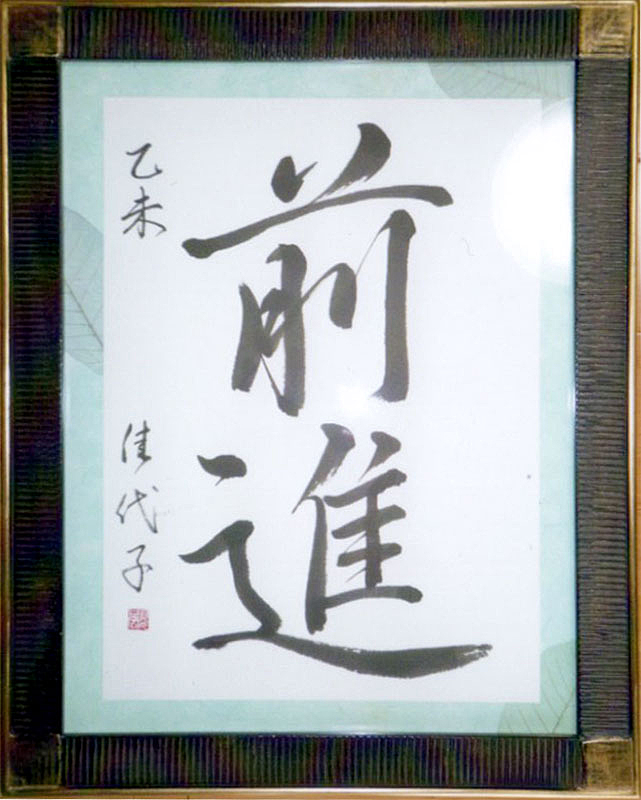 前進
乙未
佳代子